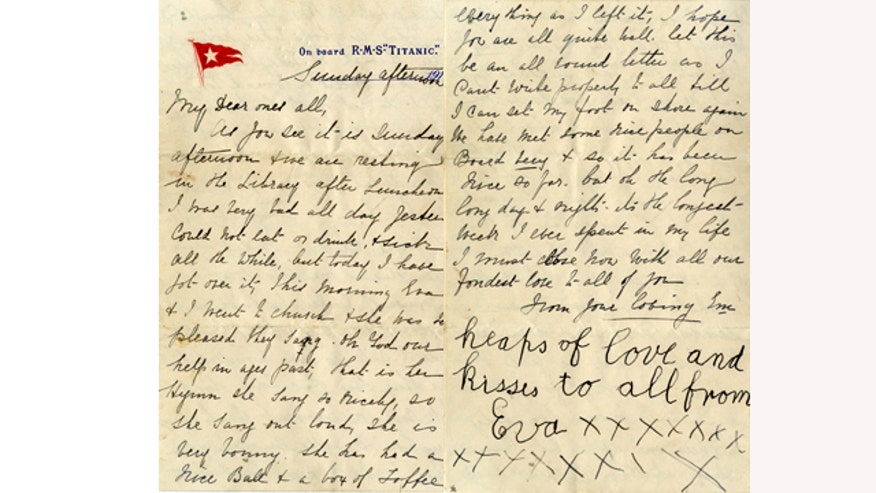 On board R·M·S "TITANIC."
Sunday afternoon
My Dear ones all,
As you see it is Sunday
afternoon & we are resting
in the Library after Luncheon
I was very bad all day Yester
Could not eat or drink, & sick
all the while, but today I have
got over it, This morning Eva
& I went to church & she was so
pleased they sang. Oh God our
help in ages past, that is her
Hymn she sang so nicely, so
she sang out loud, she is
very bonny. She has had a
nice Ball & a box of Toffee
everything as I left it, I hope
you are all quite well. let this
be an all round letter as I
Cant write properly to all till
I can set my foot on shore again
We have met some nice people on
Board Lucy & so it has been
nice so far. but oh the long
long days & nights. its the longest
week I ever spent in my life
I must close now with all our
fondest love to all of you
From your loving Em
heaps of love and
kisses to all from
Eva x x x x x x x
x x x x x x x x